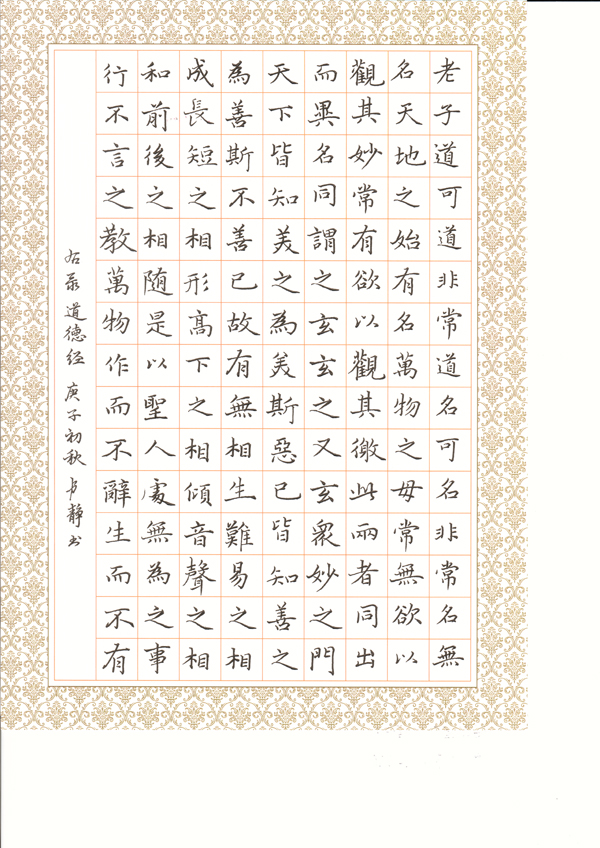 老子道可道非常道名可名非常名無
名天地之始有名萬物之母常無欲以
觀其妙常有欲以觀其徼此兩者同出
而異名同謂之玄玄之又玄衆妙之門
天下皆知美之為美斯惡已皆知善之
為善斯不善已故有無相生難易之相
成長短之相形高下之相傾音聲之相
和前後之相随是以聖人處無為之事
行不言之教萬物作而不辭生而不有
右录道德经 庚子初秋 卢静书